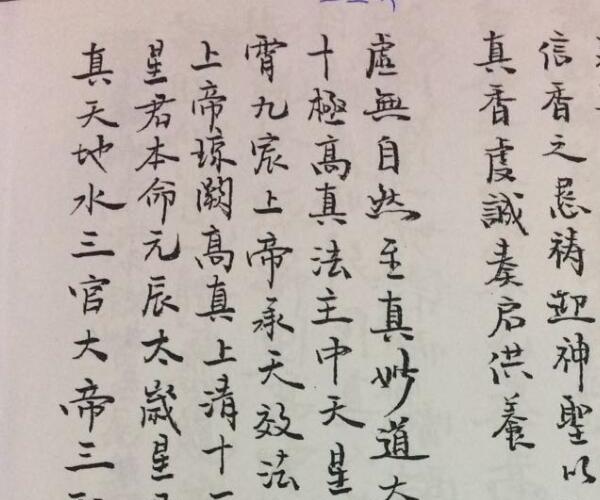 信香之恳祷迎神聖以
真香虔誠奏启供養
虛無自然至真妙道大
十極高真法主中天星
霄九宸上帝承天效法
上帝琼闕高真上清十一
星君本命元辰太歲星
真天地水三官大帝三